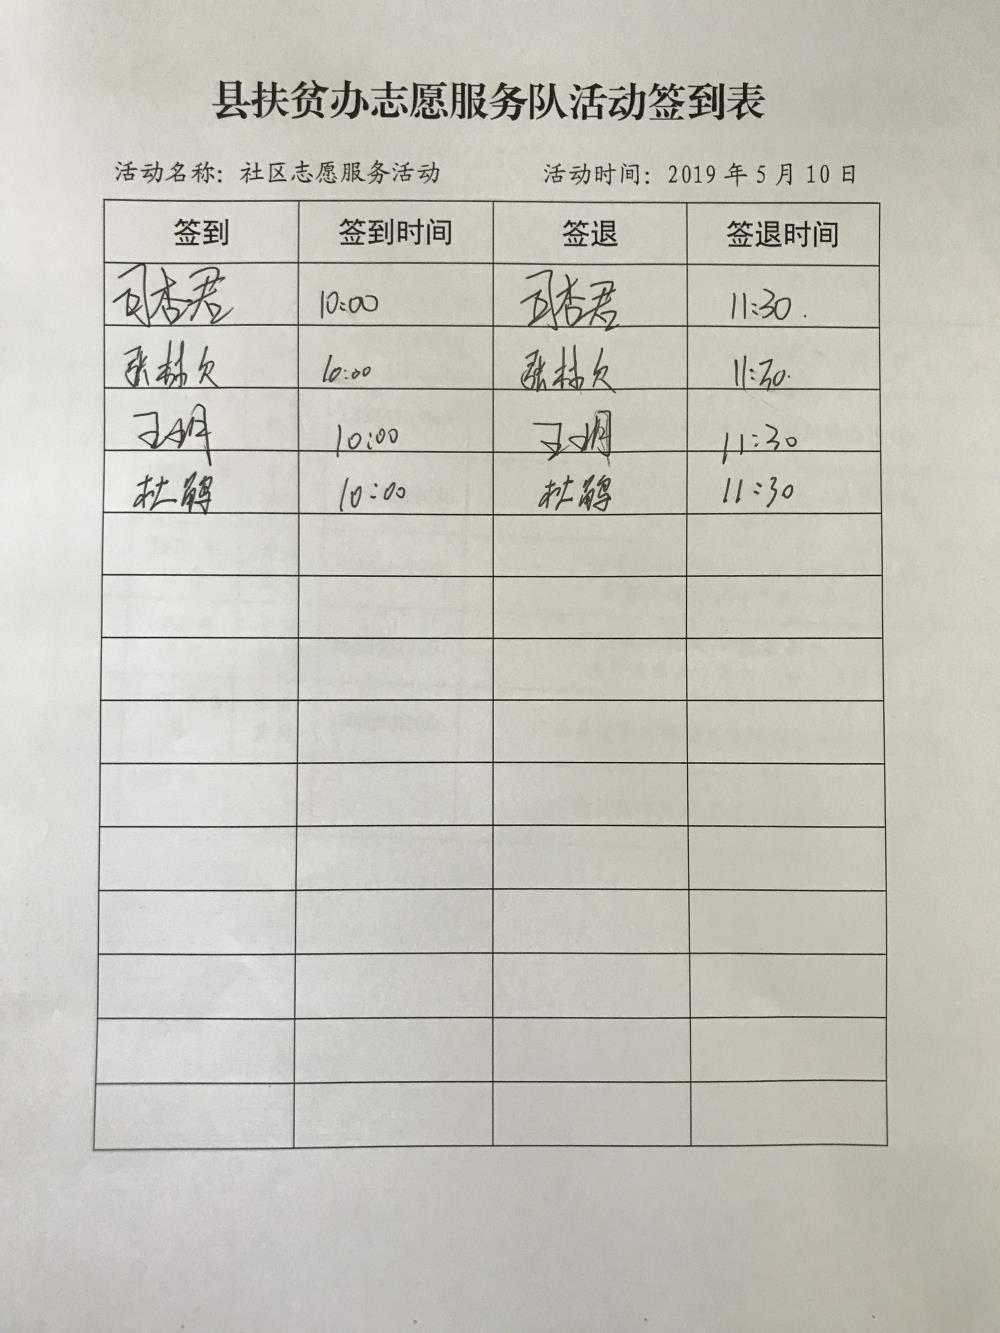 县扶贫办志愿服务队活动签到表
活动名称：社区志愿服务活动 活动时间：2019 年 5 月 10 日
签到 签到时间 签退 签退时间
司杏君 10:00 司杏君 11:30
张林欠 10:00 张林欠 11:30
王 10:00 王 11:30
杜鹃 10:00 杜鹃 11:30